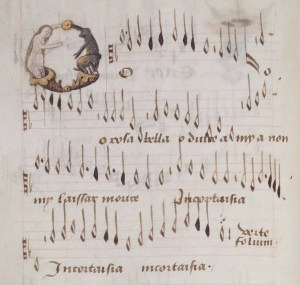 o rosa bella o dulce a my a non
my laissar morire Incortaisia
verte
folium
Incortaisia incortaisia.